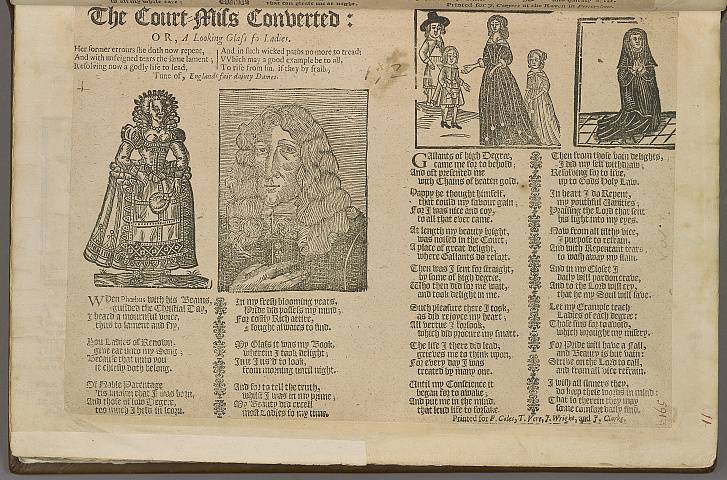 The Court-Miss Converted:
OR, A Looking Glass fo Ladies.
Her former errours she doth now repent,
And with unfeigned tears the same lament;
Resolving now a godly life to lead,
And in such wicked paths no more to tread;
VVhich may a good example be to all,
To rise from sin, if they by frail,
Tune of, Englands fair dainty Dames.
WHen Phœbus with his Beams,
guilded the Christial Day,
I heard a mournful voice,
thus to lament and say,
You Ladies of Renown,
give ear unto my Song;
Because that unto you
it chiefly doth belong.
Of Noble Parentage
'tis known that I was born,
And those of low Degree,
too much I held in scorn.
In my fresh blooming years,
Pride did possess my mind;
For costly Rich attire,
I sought always to find.
My Glass it was my Book,
wherein I took delight;
Just Jus'd to look,
from morning until night.
And for to tell the truth,
whilst I was in my prime,
My Beauty did excell
most Ladies so my time.
Gallants of high Degree,
came me for to behold;
And oft presented me
with Chains of beaten gold.
Happy he thought himself,
that could my favour gain;
For I was nice and coy,
to all that ever came.
At length my beauty bright,
was noised in the Court;
A place of great delight,
where Gallants do resort.
Then was I sent for straight,
by some of high degree,
Who then did for me wait,
and took delight in me.
Such pleasure there I took,
as did rejoyce my heart;
All vertue I forsook,
which did procure my smart.
The life I there did lead,
grieves me to think upon,
For every day I was
created by many one.
Until my Conscience it
began for to awake;
And put me in the mind,
that leud life to forsake.
Then from those vain delights,
I did my self withdraw,
Resolving for to live,
up to Gods Holy Law.
In heart I do Repent,
my youthful Vanities;
Praising the Lord that sent
his light into my eyes.
Now from all filthy vice,
I purpose to refrain,
And with Repentant tears
to wash away my stain.
And in my Closet I
daily will pardon crave,
And to the Lord will cry,
that he my Soul will save.
Let my Example teach
Ladies of each degree;
Those sins for to avoid,
which wrought my misery.
For Pride will have a Fall,
and Beauty is but vain:
Strive on the Lord to call,
and from all vice refrain.
I wish all sinners they,
do keep these words in mind;
That so therein they may
some comfort daily find.
Printed for F. Coles, T. Vere, J. Wright, and J. Clarke.
11